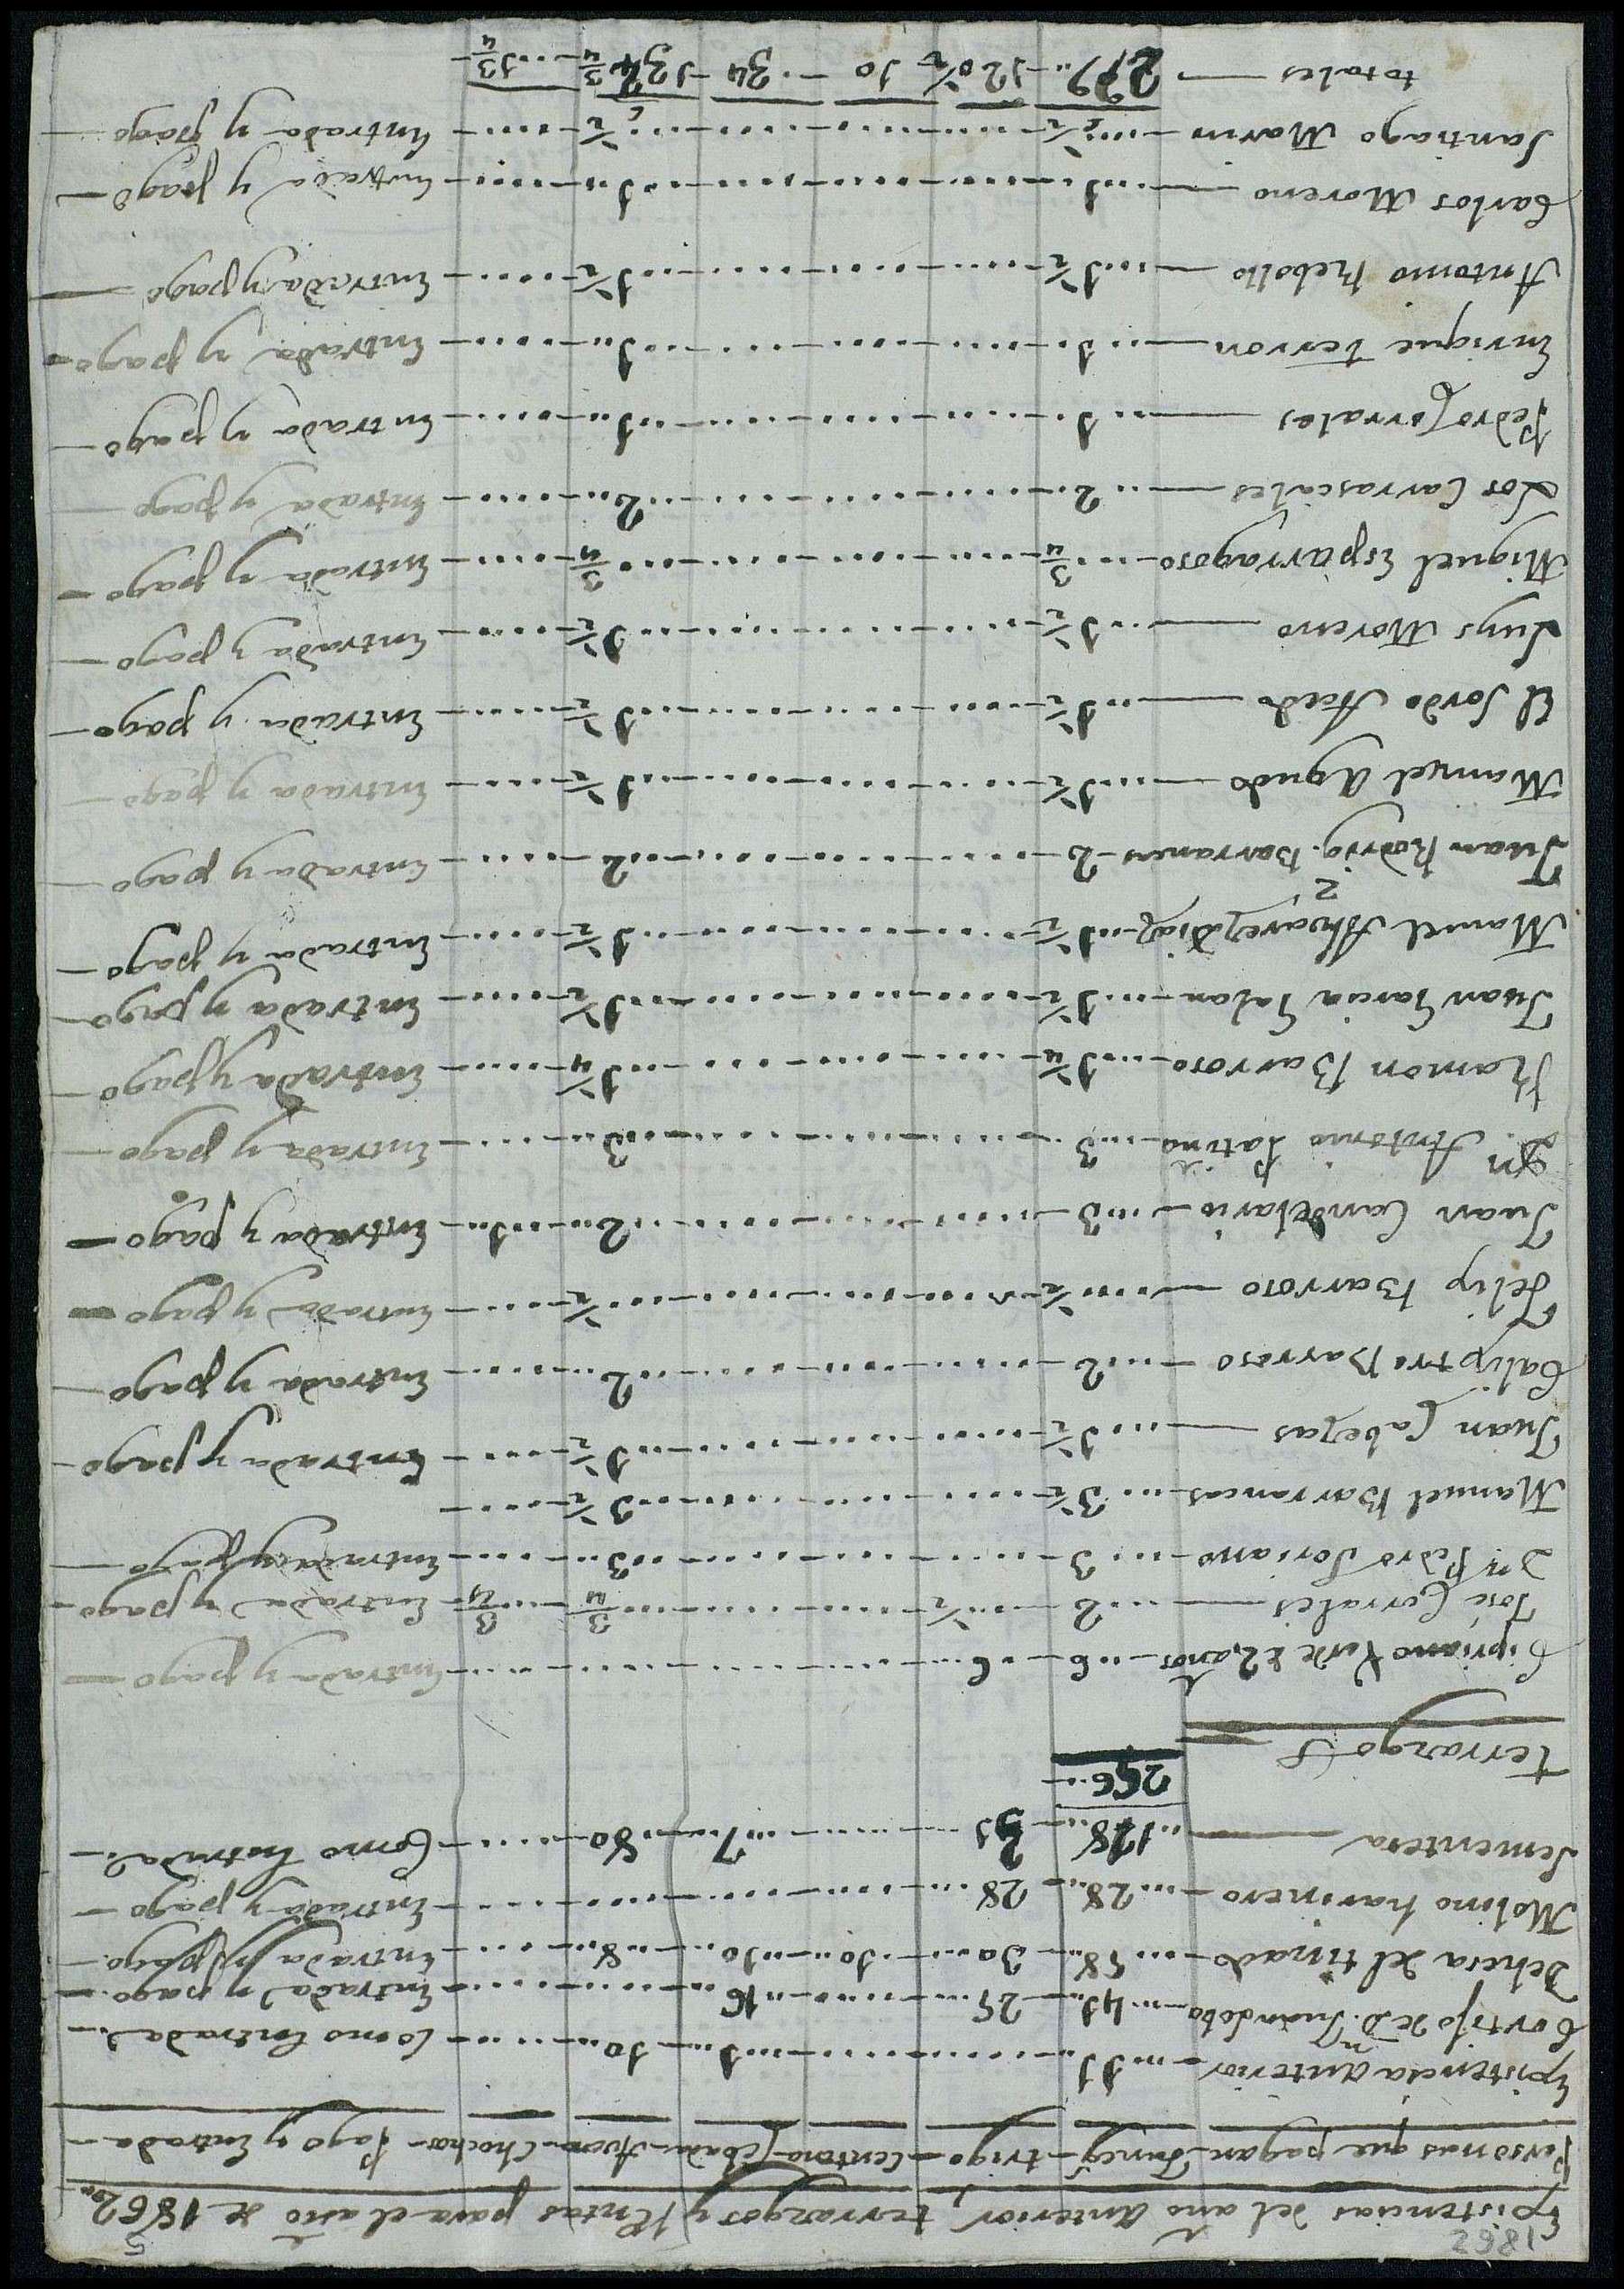 1862
5
Existencias del año Anterior, terrazgos y Rentas para el año de 1862
Personas que pagan - Faneg.s - trigo - Centeno - Cebada - Avena - Chochos - Pago y Entrada -
Existencia Anterior - 11 - 1 - 10 - Como Entrada
Cortijo de D.n Juan - 41 - 25 - 16 - Entrada y pago -
Dehesa del tinado - 58 - 30 - 10 - 10 - 8 - Entrada y pago -
Molino harinero - 28 - 28 - Entrada y pago -
Sementera - 128 - 7 - 80 - Como Entrada -
256
terrazgos
Cipriano de 2 años - 6 - 6 - Entrada y pago -
José Corrales - 2 - 1/2 - 3/4 - 3/4 - Entrada y pago -
D.n Pedro Soriano - 3 - 3 - Entrada y pago -
Manuel Barrancas - 3 1/2 - 3 1/2 -
Juan Cabezas - 1 1/2 - 1 1/2 - Entrada y pago -
Calixtro Barroso - 2 - 2 - Entrada y pago -
Felip Barroso - 1/2 - 1/2 - Entrada y pago -
Juan Candelario - 3 - 2 - 1 - Entrada y pago -
D.n Antonio Patiño - 3 - 3 - Entrada y pago -
Ramon Barroso - 1 1/4 - 1 1/4 - Entrada y pago -
Juan Garcia Galan - 1 1/2 - 1 1/2 - Entrada y pago -
Manuel Alvarez Diaz - 1 1/2 - 1 1/2 - Entrada y pago -
Juan Rodrig.z Barrancs - 2 - 2 - Entrada y pago -
Manuel Agudo - 1 1/2 - 1 1/2 - Entrada y pago -
El Sordo Acedo - 1 1/2 - 1 1/2 - Entrada y pago -
Luys Moreno - 1 1/2 - 1 1/2 - Entrada y pago -
Miguel Esparragoso - 3/4 - 3/4 - Entrada y pago -
Los Carrascales - 2 - 2 - Entrada y pago -
Pedro Corrales - 1 - 1 - Entrada y pago -
Enrique terron - 1 - 1 - Entrada y pago -
Antonio Rebollo - 1 1/2 - 1 1/2 - Entrada y pago -
Carlos Moreno - 1 - 1 - Entrada y pago -
Santiago Marin - 1/2 - 1/2 - Entrada y pago -
totales - 120 1/2 - 10 - 34 - 13 3/4